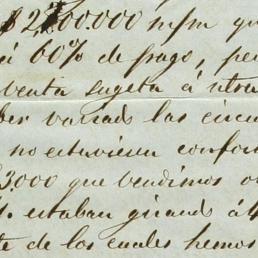 $2,700.000 m/m qu
á 60% de pago, pe
venta sugeta á otra
ber variado las circu
no estuviesen confor
3,000 que vendimos
estaban girando á
te de los cuales hemos